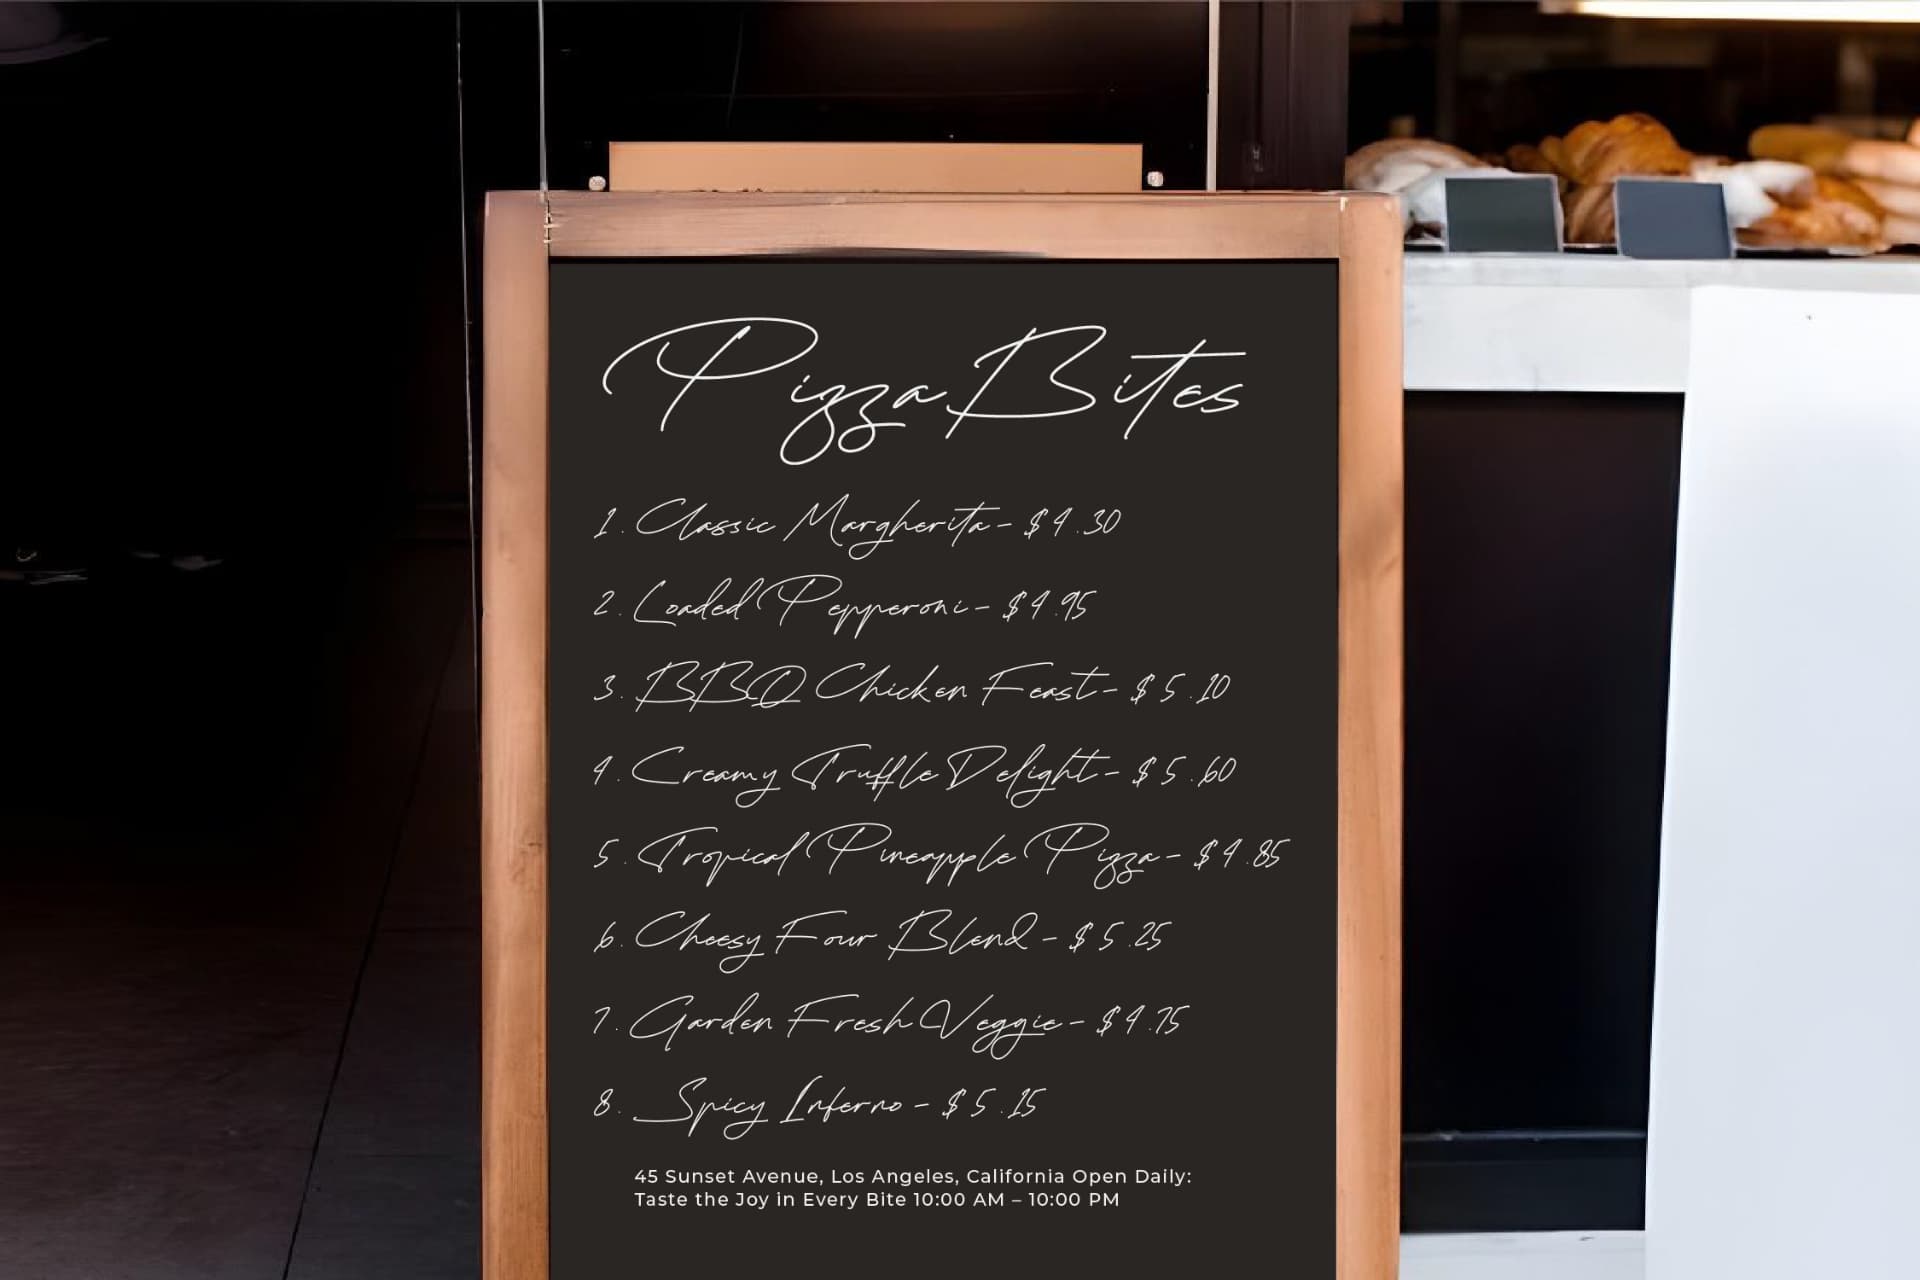 Pizza Bites
1. Classic Margherita - $4.30
2. Loaded Pepperoni - $4.95
3. BBQ Chicken Feast - $5.10
4. Creamy Truffle Delight - $5.60
5. Tropical Pineapple Pizza - $4.85
6. Cheesy Four Blend - $5.25
7. Garden Fresh Veggie - $4.75
8. Spicy Inferno - $5.15
45 Sunset Avenue, Los Angeles, California Open Daily:
Taste the Joy in Every Bite 10:00 AM – 10:00 PM